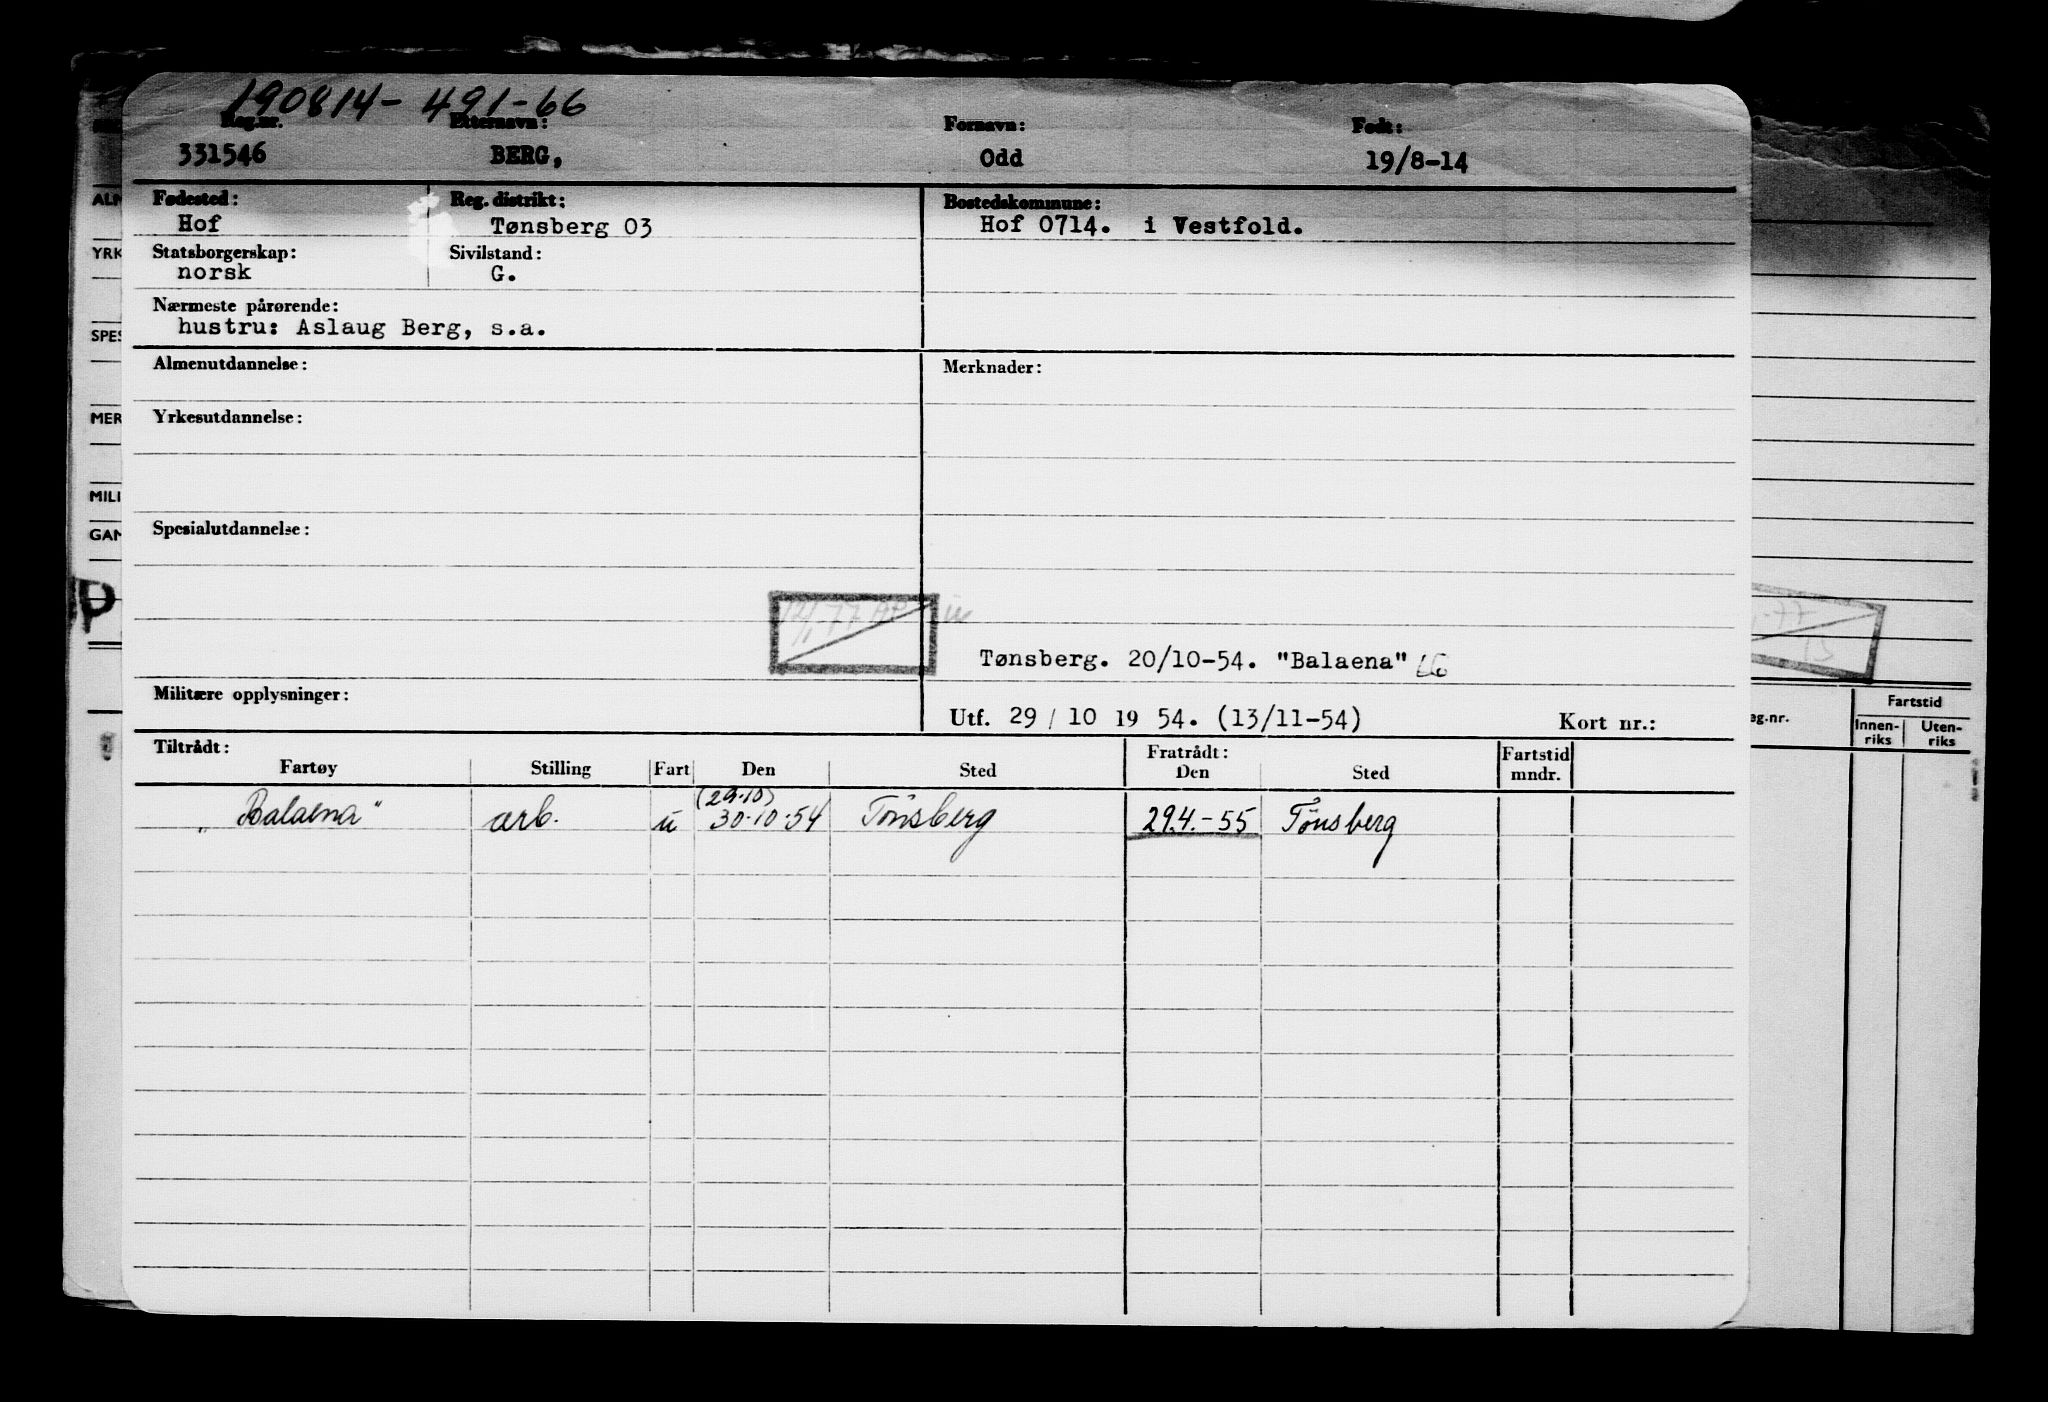 190814- 491-66
Reg.nr. Etternavn: Fornavn: Født:
331546 BERG, Odd 19/8-14
Fødested: Reg. distrikt: Bostedskommune:
Hof Tønsberg 03 Hof 0714. i Vestfold.
Statsborgerskap: Sivilstand:
norsk G.
Nærmeste pårørende:
hustru: Aslaug Berg, s.a.
Almenutdannelse: Merknader:
Yrkesutdannelse:
Spesialutdannelse:
Tønsberg. 20/10-54. "Balaena"
Militære opplysninger:
Utf. 29 / 10 19 54. (13/11-54) Kort nr.:
Tiltrådt: Fratrådt: Fartstid
Fartøy Stilling Fart Den Sted Den Sted mndr.
(29.10)
„Balaena" arb. u 30.10.54 Tönsberg 29.4.-55 Tönsberg
ALM
YRK
SPES
MER
MILI
GAM
P
-77
eg.nr. Fartstid
Innen-
riks
Uten-
riks